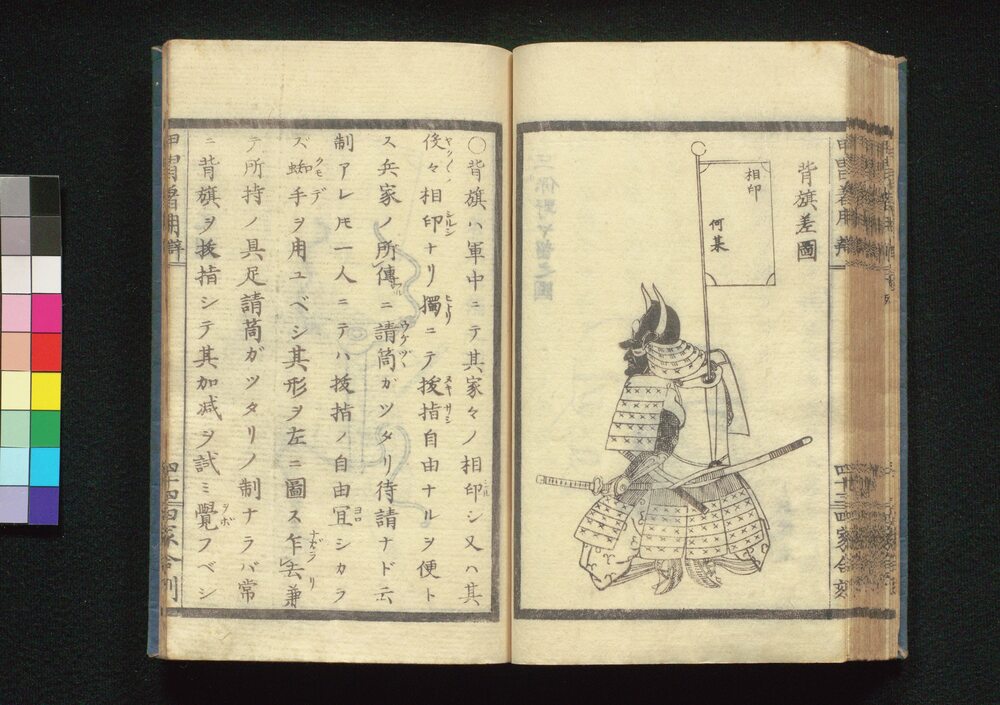 背旗差圖
相印
何某
四十三 四家合刻
〇背旗ハ軍中ニテ其家々ノ相印シ又ハ其
後々相印ナリ獨ニテ拔指自由ナルヲ便ト
ス兵家ノ所傳ニ請筒ガツタリ待請ナド云
制アレ𪜈一人ニテハ拔指ノ自由冝シカラ
ズ蜘手ヲ用ユベシ其形ヲ左ニ圖ス乍去兼
テ所持ノ具足請筒ガツタリノ制ナラバ常
ニ背旗ヲ拔指シテ其加減ヲ試ミ覺フベシ
四十四 四家合刻